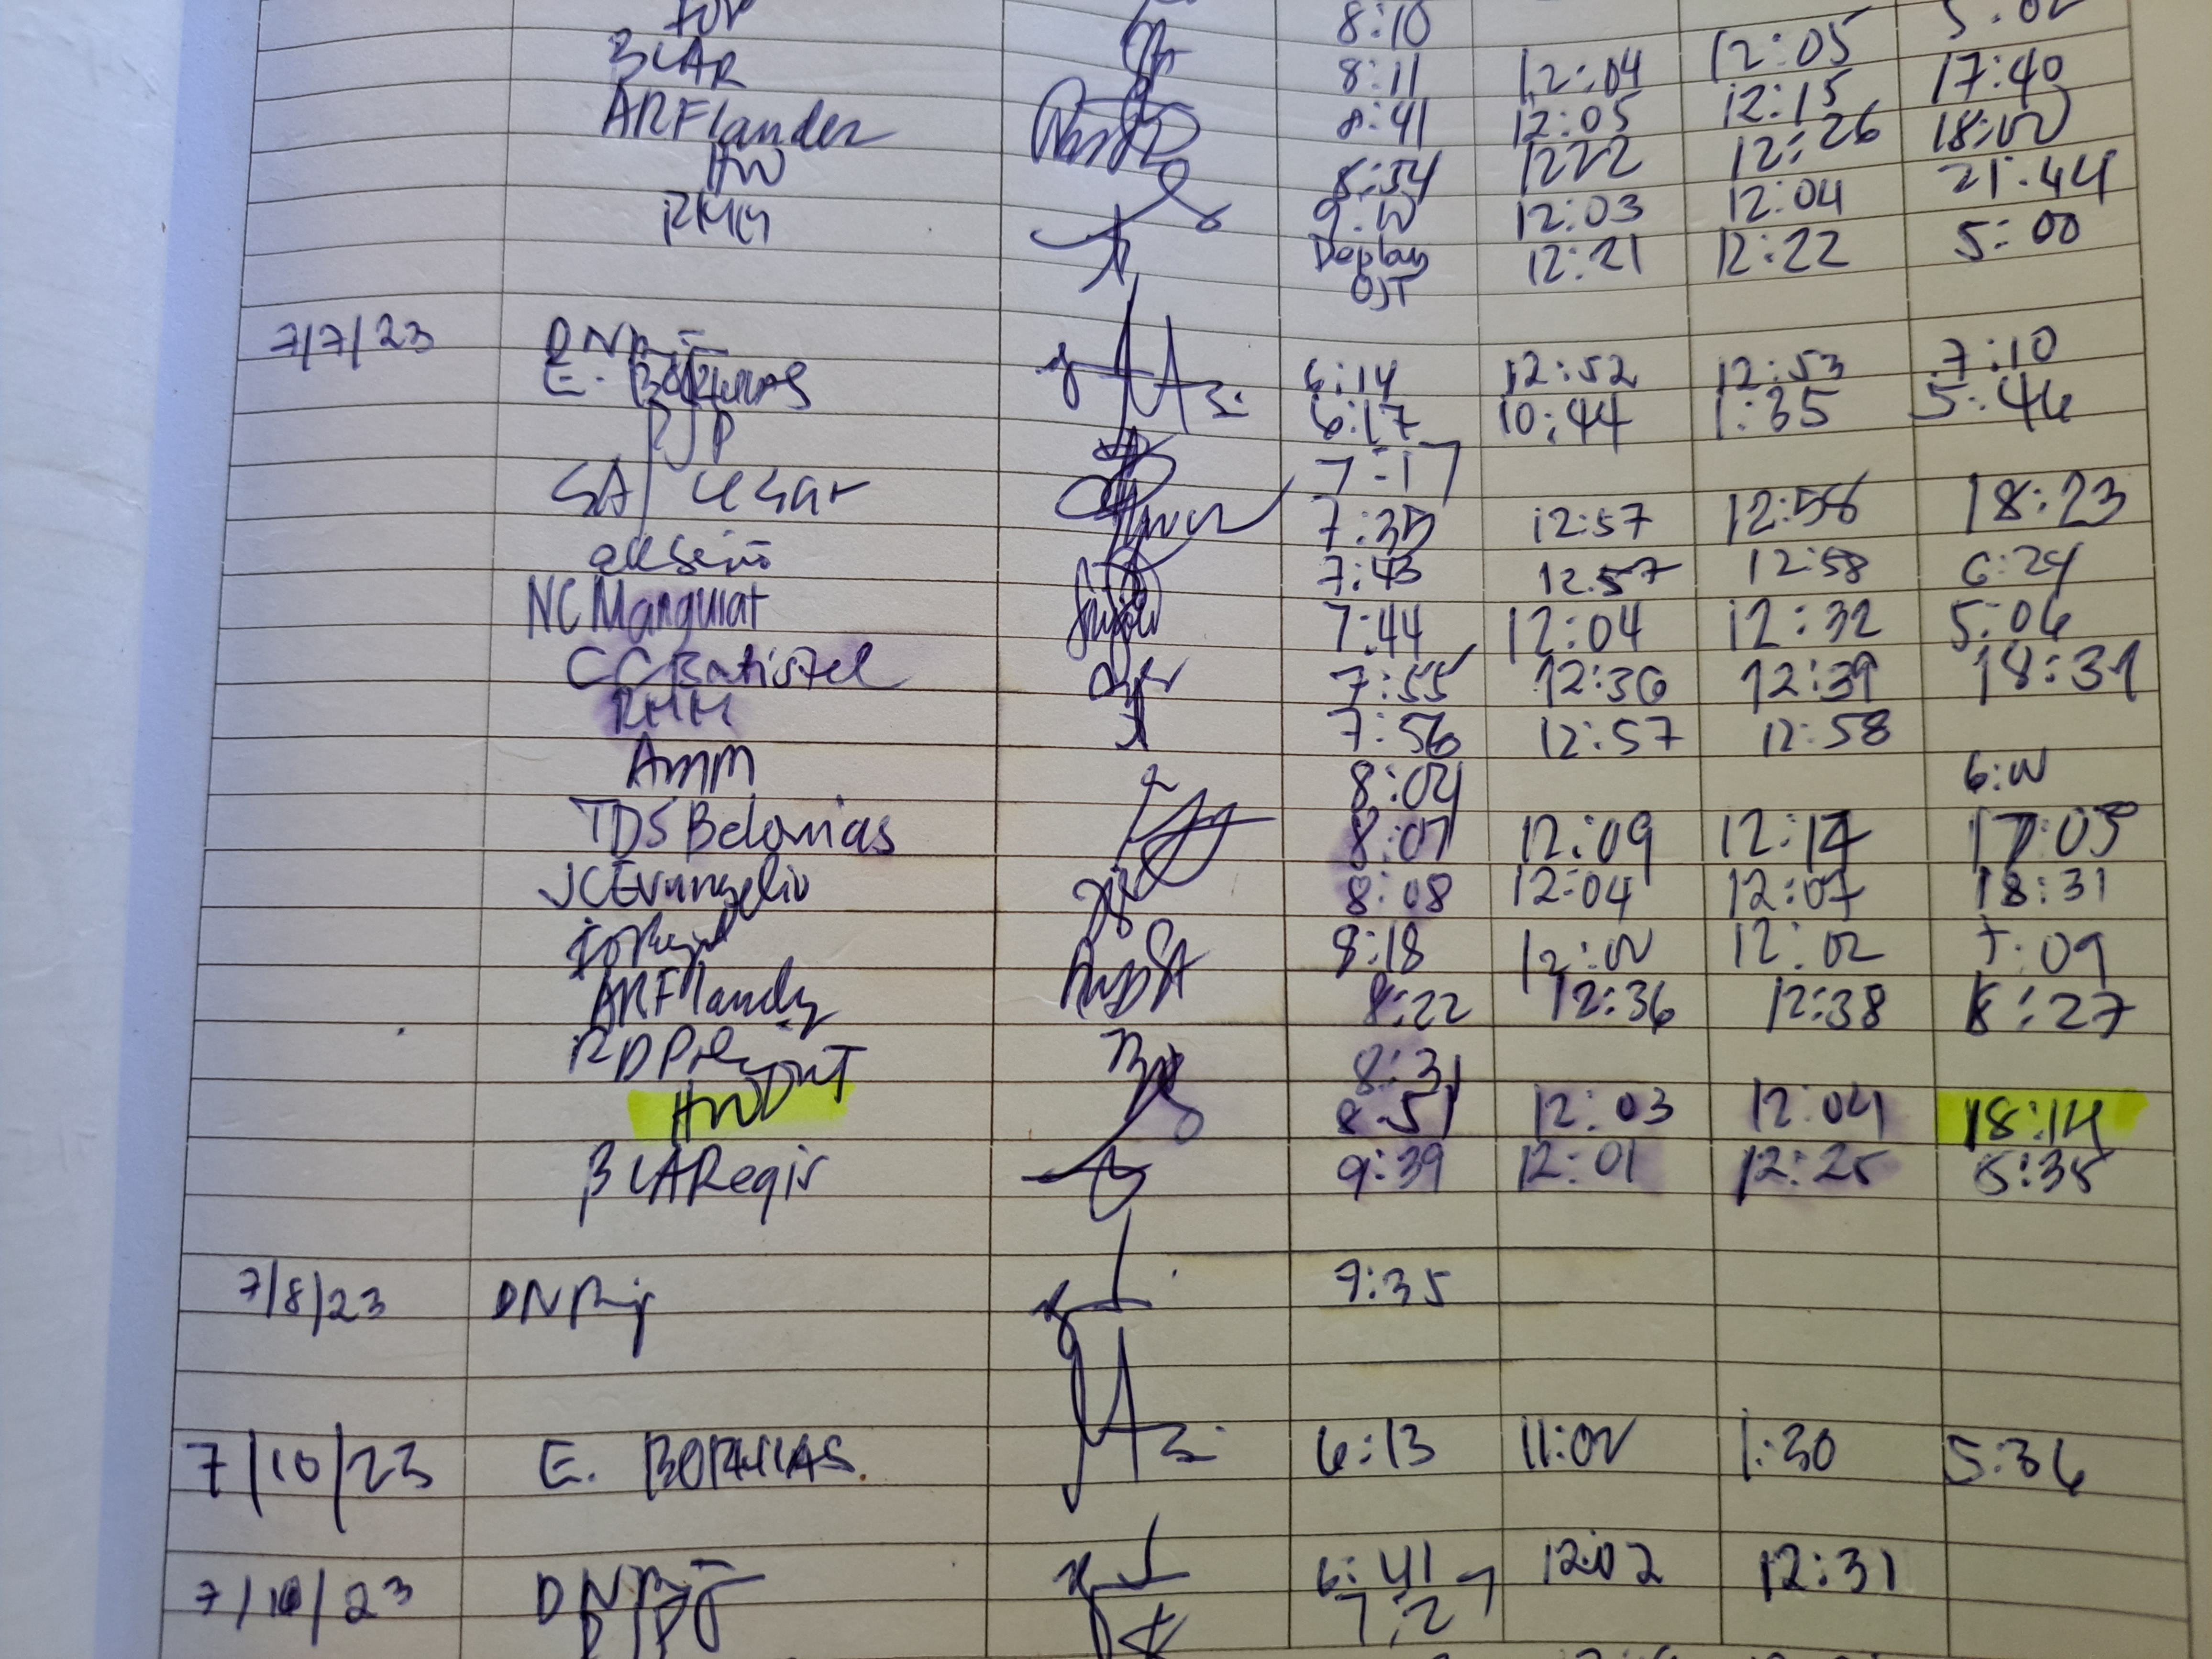 8:10
BLAR 8:11 12:04 12:05 17:40
ARFlander 8:41 12:05 12:15 18:00
HW 8:34 1222 12:26 21:44
RMM 9:00 12:03 12:04 5:00
Deploy OJT 12:21 12:22
7/7/23 6:14 12:52 12:53 7:10
E. 6:17 10:44 1:35 5:46
RJP 7:17
SA Cesar 7:35 12:57 12:58 18:23
7:43 12:57 12:58 6:24
NC Manguiat 7:44 12:04 12:32 5:06
CC Batistel 7:55 12:36 12:39 18:31
RMM 7:56 12:57 12:58
AMM 8:04 6:00
TDS Belonias 8:07 12:09 12:14 17:05
JCEvangelio 8:08 12:04 12:07 18:31
8:18 12:00 12:02 5:09
ARFlander 8:22 12:36 12:38 8:27
RDP 8:31
HW 8:51 12:03 12:04 18:14
BLARegis 9:39 12:01 12:25 5:35
7/8/23 DN 7:35
7/10/23 E. 6:13 11:00 1:30 5:36
7/10/23 DN 6:41 12:02 12:31
7:27